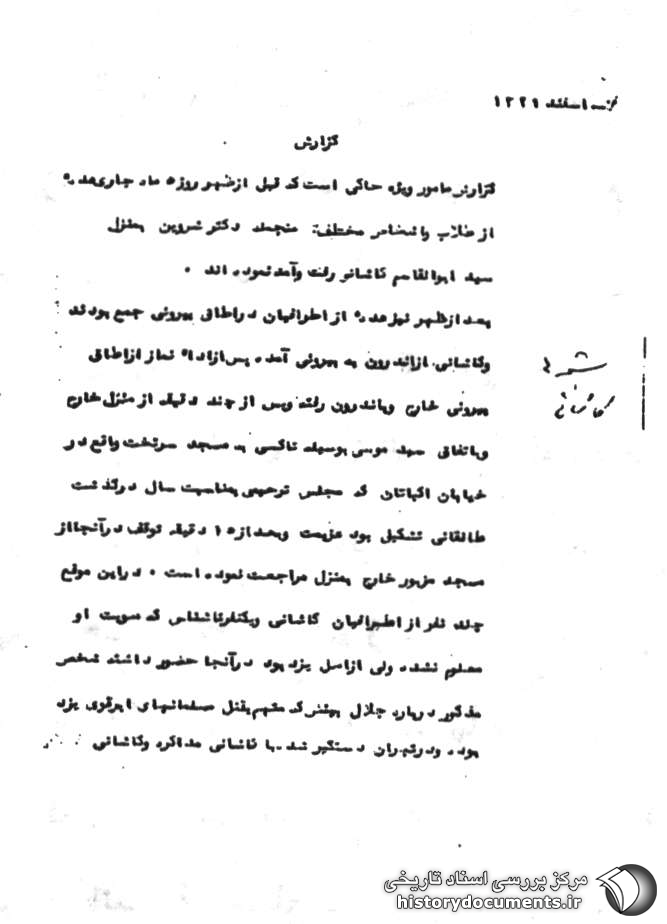 اسفند ۱۳۳۱
گزارش
گزارش مامور ویژه حاکی است که قبل ازظهر روز ۵ ماه جاری عده
از طلاب و اشخاص مختلف منجمله دکتر شروین بمنزل
سید ابوالقاسم کاشانی رفت وآمد نموده اند ۰
بعد ازظهر نیز عده از اطرافیان دراطاق بیرونی جمع بودند
وکاشانی ازاندرون به بیرونی آمده پس ازاداء نماز ازاطاق
بیرونی خارج وباندرون رفته وپس از چند دقیقه از منزل خارج
وباتفاق سید موسی بوسیله تاکسی به مسجد سرتخت واقع در
خیابان اکباتان که مجلس ترحیمی بمناسبت سال درگذشت
طالقانی تشکیل بود عزیمت وبعداز ۱۵ دقیقه توقف درآنجا از
مسجد مزبور خارج بمنزل مراجعت نموده است ۰ دراین موقع
چند نفر از اطرافیان کاشانی ویکنفر ناشناس که هویت او
معلوم نشده ولی ازاهل یزد بود درآنجا حضور داشتند شخص
مذکور درباره جلال بهمنی که متهم بقتل مسلمانهای ابرقوی یزد
بوده ودرتهران دستگیر شد. با کاشانی مذاکره وکاشانی
کاشانی
مرکز بررسی اسناد تاریخی
historydocuments.ir